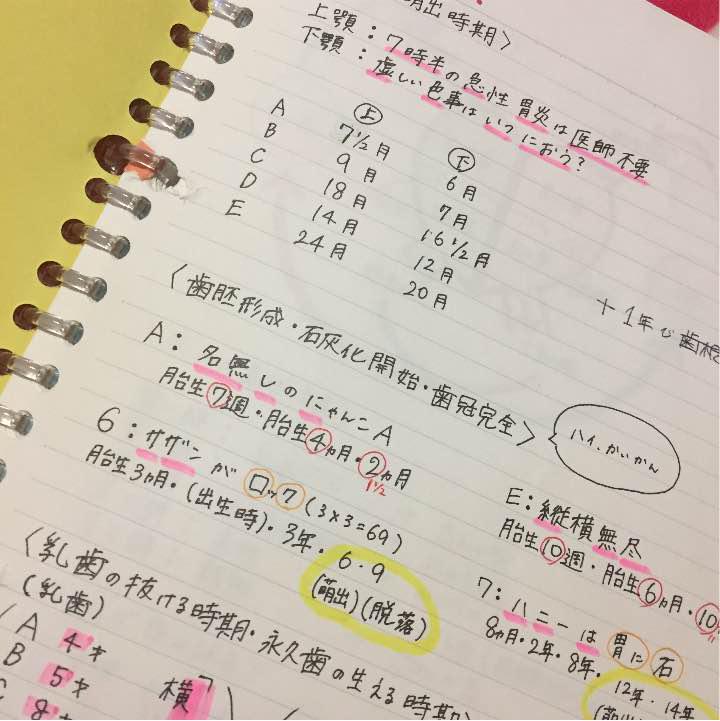 萌出時期〉
上顎：7時半の急性胃炎は医師不要
下顎：虚しい色事はいつにおう？
上 下
A 7½月 6月
B 9月 7月
C 18月 16½月
D 14月 12月
E 24月 20月
+1年で歯根
〈歯胚形成・石灰化開始・歯冠完全〉
ハイ、かいかん
A：名無しのにゃんこA
胎生7週・胎生4ヵ月・2ヵ月
1½
E：縦横無尽
胎生10週・胎生6ヵ月・10
6：サザンがロック（3×3=69）
胎生3ヵ月・（出生時）・3年・6・9
（萌出）（脱落）
7：ハニーは胃に石
8ヵ月・2年・8年・12年・14年
〈乳歯の抜ける時期・永久歯の生える時期〉
（乳歯）
A 4才
B 5才
C 8才
横